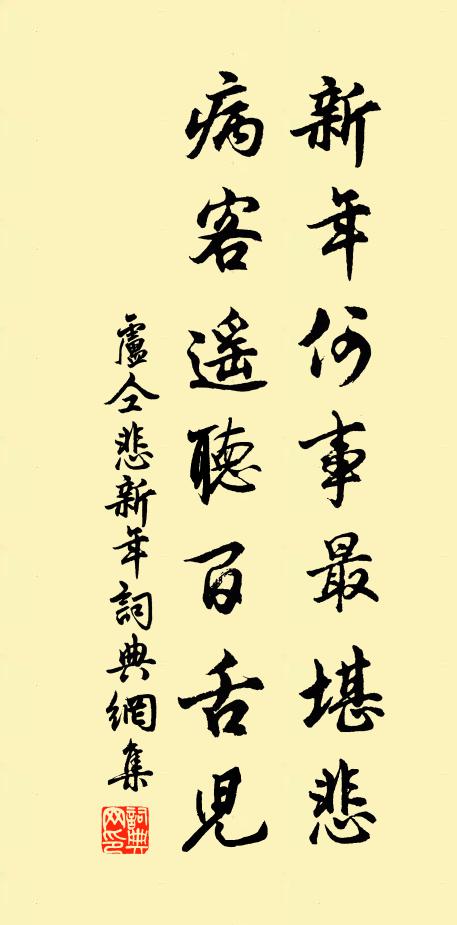 新年何事最堪悲
病客遙聽百舌兒
盧仝悲新年詞典網集
詞典网印